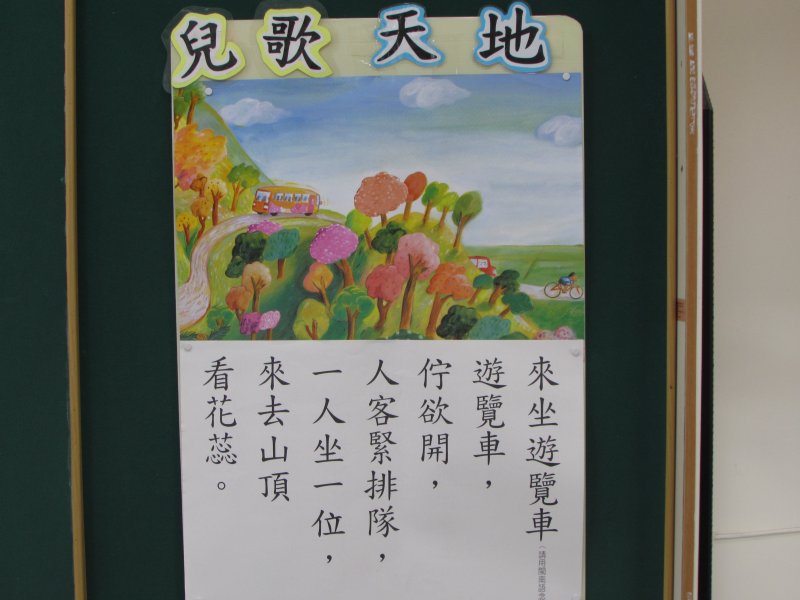 兒歌天地
來坐遊覽車
（請用閩南語念
遊覽車，
佇欲開，
人客緊排隊，
一人坐一位，
來去山頂
看花蕊。